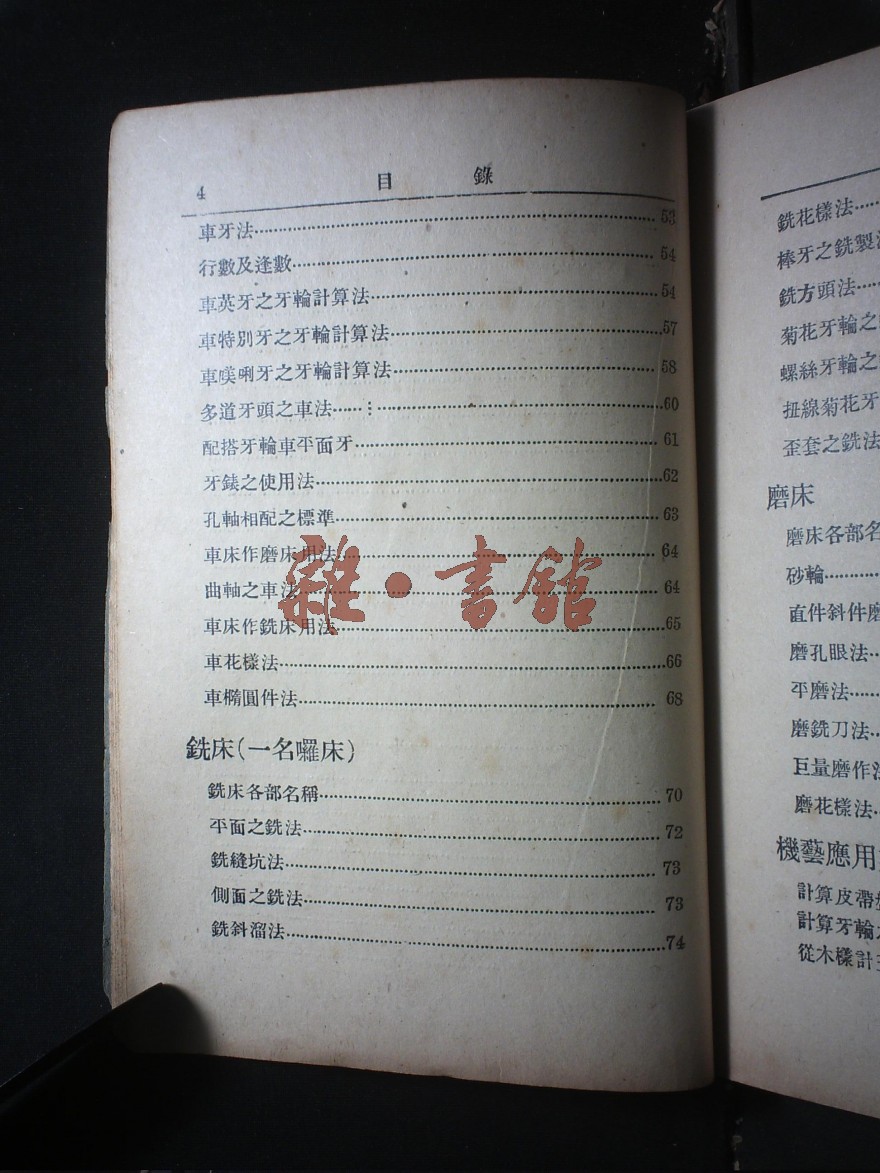 4 目 錄
車牙法 53
行數及逢數 54
車英牙之牙輪計算法 54
車特別牙之牙輪計算法 57
車咪唎牙之牙輪計算法 58
多道牙頭之車法 60
配搭牙輪車平面牙 61
牙錶之使用法 62
孔軸相配之標準 63
車床作磨床用法 64
曲軸之車法 64
車床作銑床用法 65
車花樣法 66
車橢圓件法 68
銑床(一名囉床)
銑床各部名稱 70
平面之銑法 72
銑縫坑法 73
側面之銑法 73
銑斜溜法 74
雜·書館
銑花樣法
棒牙之銑製
銑方頭法
菊花牙輪之
螺絲牙輪之
扭線菊花牙
歪套之銑法
磨床
磨床各部名
砂輪
直件斜件磨
磨孔眼法
平磨法
磨銑刀法
巨量磨作
磨花樣法
機藝應用
計算皮帶
計算牙輪
從木樣計